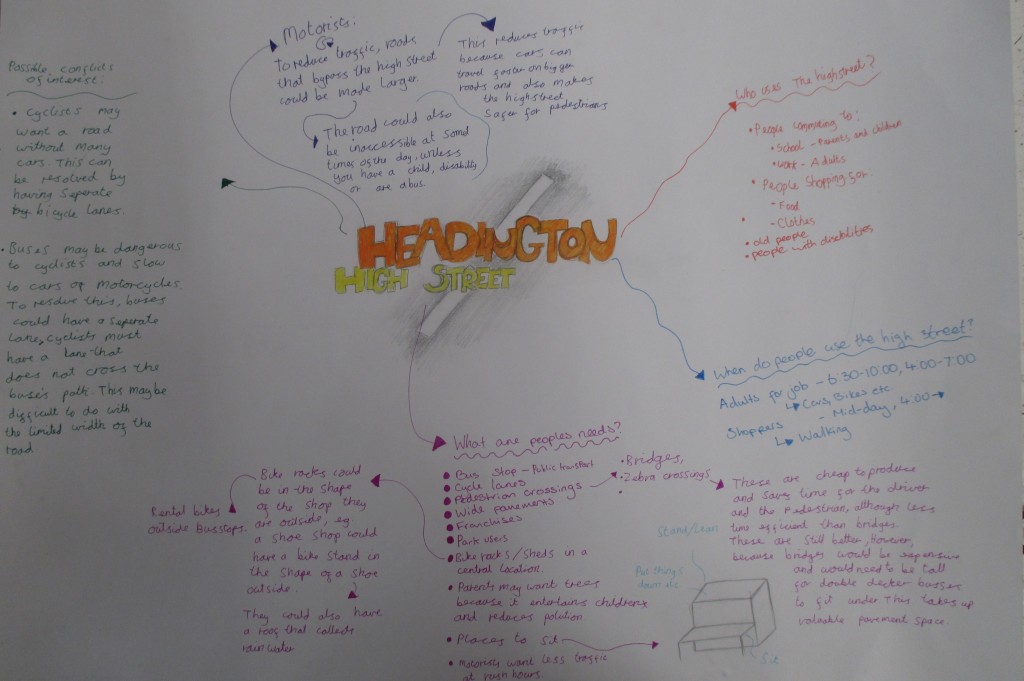 HEADINGTON
HIGH STREET
Motorists:
To reduce traffic, roads
that bypass the high street
could be made larger.
This reduces traffic
because cars can
travel faster on bigger
roads and also makes
the highstreet
safer for pedestrians
The road could also
be inaccessible at some
times of the day, unless
you have a child, disability
or are a bus.
Possible conflicts
of interest:
• Cyclists may
want a road
without many
cars. This can
be resolved by
having seperate
bicycle lanes.
• Buses may be dangerous
to cyclists and slow
to cars or Motorcycles.
To resolve this, buses
could have a seperate
lane, cyclists must
have a lane that
does not cross the
buses path. This may be
difficult to do with
the limited width of the
road
Who uses The highstreet?
• People commuting to:
• School - Parents and children
• Work - Adults
• People Shopping for
- Food
- Clothes
• old people
• people with disabilities
When do people use the high street?
Adults for job - 6:30-10:00, 4:00-7:00
Cars, Bikes etc.
Shoppers - Mid-day, 4:00
Walking
What are peoples needs?
• Bus Stop - Public transport
• Cycle lanes
• Pedestrian crossings
• Wide pavements
• Franchises
• Park users
• Bike racks/sheds in a
central location.
• Parents may want trees
because it entertains childrens
and reduces polution
• Places to sit
• Motorists want less traffic
at rush hours.
• Bridges,
• Zebra crossings
•
These are cheap to produce
and saves time for the driver
and the pedestrian, although less
time efficient than bridges.
These are still better, However,
because bridges would be expensive
and would need to be tall
for double decker busses
to fit under. This takes up
valuable pavement space.
Bike racks could
be in the shape
of the shop they
are outside, eg.
a shoe shop could
have a bike stand in
the shape of a shoe
outside.
They could also have
a roof that collects
rain water
Rental bikes
outside Bus stops.
Stand/Lean
Put things
down etc.
Sit